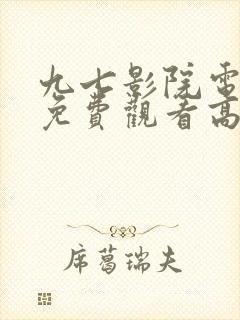 九七影院電
免費觀看高
席葛瑞夫